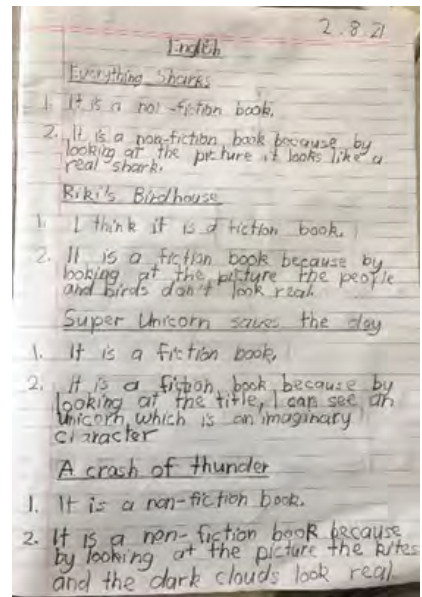 2.8.21
English
Everything Sharks
1. It is a non-fiction book.
2. It is a non-fiction book because by
looking at the picture it looks like a
real shark.
Riki's Birdhouse
1. I think it is a fiction book.
2. It is a fiction book because by
looking at the picture the people
and birds don't look real.
Super Unicorn saves the day
1. It is a fiction book.
2. It is a fiction book because by
looking at the title, I can see an
Unicorn which is an imaginary
character
A crash of thunder
1. It is a non-fiction book.
2. It is a non-fiction book because
by looking at the picture the kites
and the dark clouds look real.